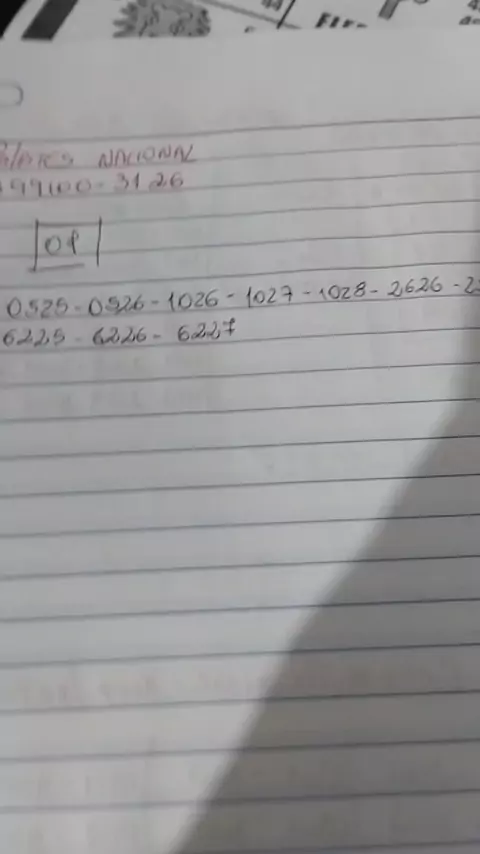 NACIONAL
99100-3126
01
0525-0526-1026-1027-1028-2626-2
6225-6226-6227